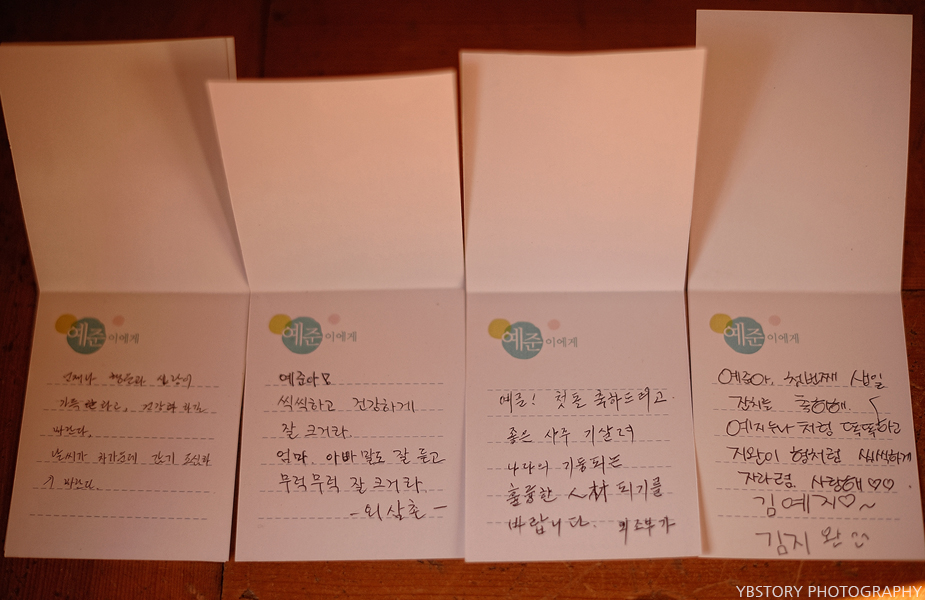 예준이에게
언제나 행운과 사랑이
가득 하고, 건강하길
바란다.
날씨가 차가운데 감기 조심하
길 바란다.
예준이에게
예준아
씩씩하고 건강하게
잘 크거라.
엄마, 아빠 말도 잘 듣고
무럭무럭 잘 크거라.
- 외삼촌 -
예준이에게
첫돌 축하드리고
좋은 사주 기살려
나라의 기둥되는
훌륭한 人材 되기를
바랍니다.
예준이에게
예준아, 첫번째 생일
잔치를 축하해.
예지누나처럼 똑똑하고
지완이 형처럼 씩씩하게
자라렴. 사랑해 ♡♡.
김예지♡~
김지완
YBSTORY PHOTOGRAPHY